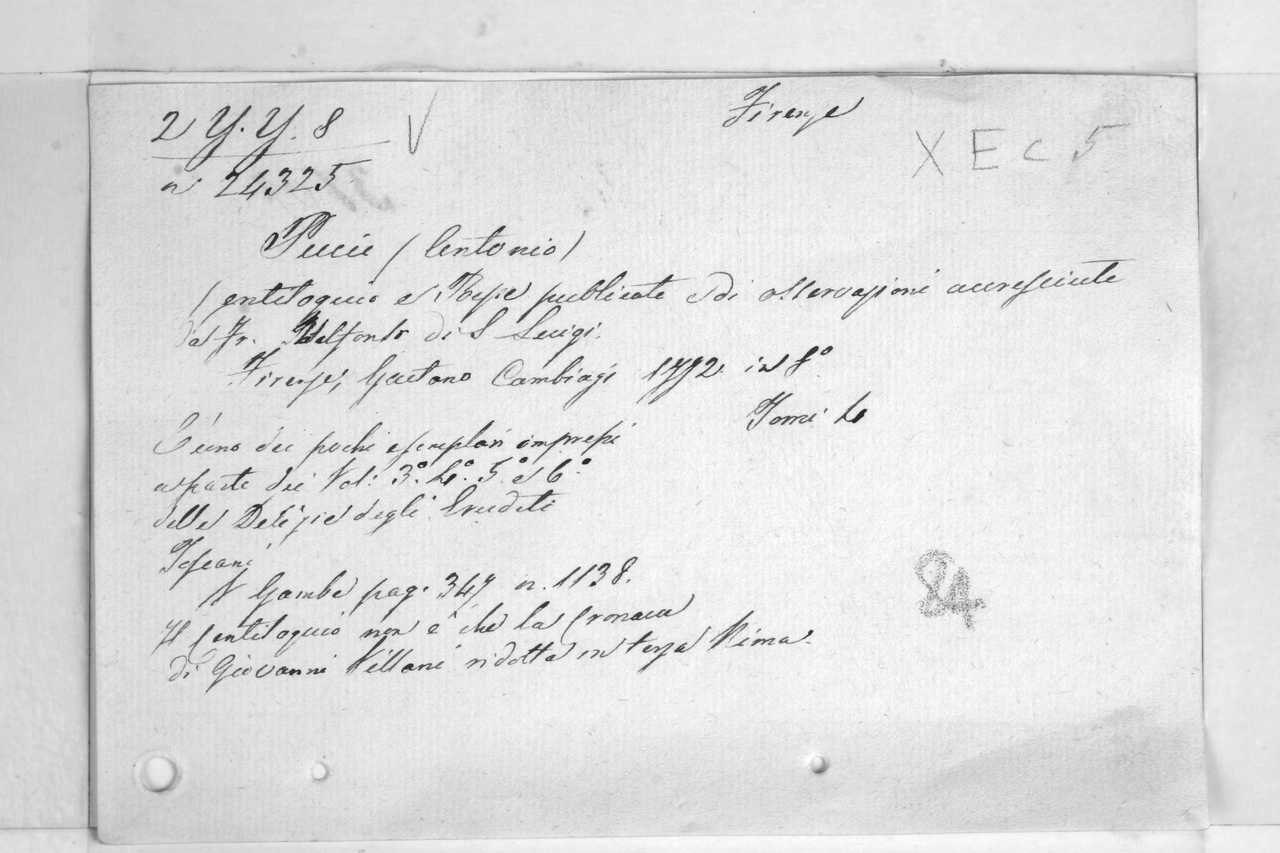 2 Y. Y. 8 V
Firenze
X E C 5
n 24325
Pucci (Antonio)
Centiloquio e Rime publicate e di osservazioni accresciute
da Fr. Idelfonso di S. Luigi.
Firenze, Gaetano Cambiagi 1772 in 8°
Tomi 4
È uno dei pochi esemplari impressi
a parte dei Vol: 3°. 4°. 5°. e 6°.
delle Delizie degli Eruditi
Toscani
V Gamba pag. 347 n. 1138.
Il Centiloquio non è che la Cronaca
di Giovanni Villani ridotta in terza Rima.
84